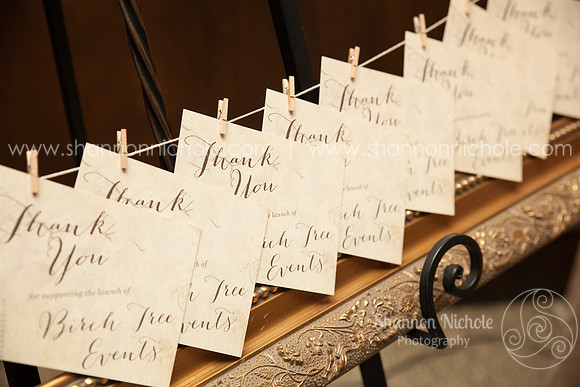 www.shannonnichole.com © www.shannonnichole.com
Thank
You
for supporting the launch of
Birch Tree
Events
Thank
launch of
Tree
Events
Thank
You
launch of
Birch Tree
Events
Thank
You
Birch Tree
Events
Thank
You
Tree
Events
Thank
Tree
Events
Thank
Tree
Events
Thank
You
Shannon Nichole
Photography